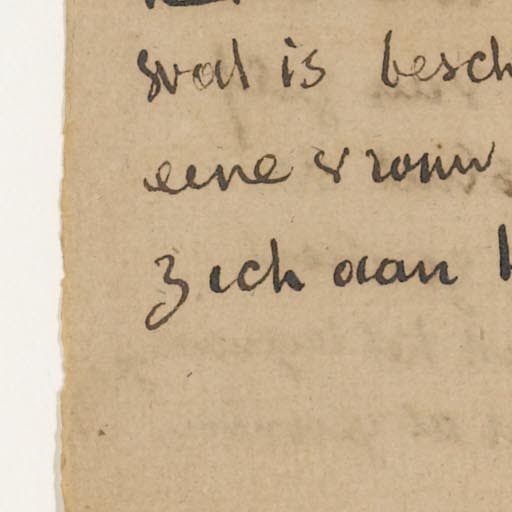 wat is besch
eene vrouw
zich aan